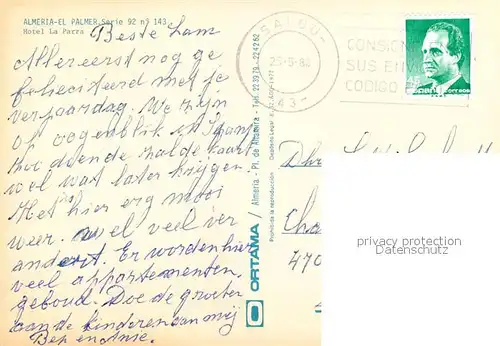 ALMERIA-EL PALMER Serie 92 nº 143
Hotel La Parra
Beste Lam
Allereerst nog ge
feliciteerd met je
verjaardag. We zijn
op ogenblik in Span
hoe doende zal de kaart
wel wat later krijgen.
Het is hier erg mooi
weer. wel veel ver
anderd. Er worden hier
veel appartementen
geboud. Doe de groeten
aan de kinderen van mij
Bep en Anie.
ORTAMA / Almeria - Pl. de Almeria - Tels. 223979 - 224262
Prohibida la reproducción
SALOU
43
CONSIGNE
SUS ENV
CODIGO
45
ESPAÑA CORREOS
Dhr
Cha
470
privacy protection
Datenschutz